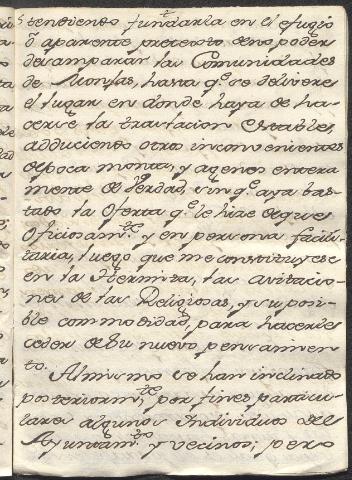 tendiendo fundarla en el efugio
ô aparente pretexto, de no poder
desamparar las Comunidades
de Monjas, hasta q.e se delivere
el lugar en donde haya de ha-
cerse la traslacion Estable,
adduciendo otros inconvenientes
de poca monta, y agenos entera
mente de Verdad, sin q.e aya bas-
tado la Oferta q.e le hize de que
Oficiosam.te y en persona facili-
taria, luego que me constituyese
en la Hermita, las avitacio-
nes de las Religiosas, y su posi-
ble commodidad, para hacerles
ceder de su nuevo pensamien-
to.
Almismo se han inclinado
posteriorm.te, por fines particu-
lares algunos Individuos del
Ayuntam.to y vecinos; pero